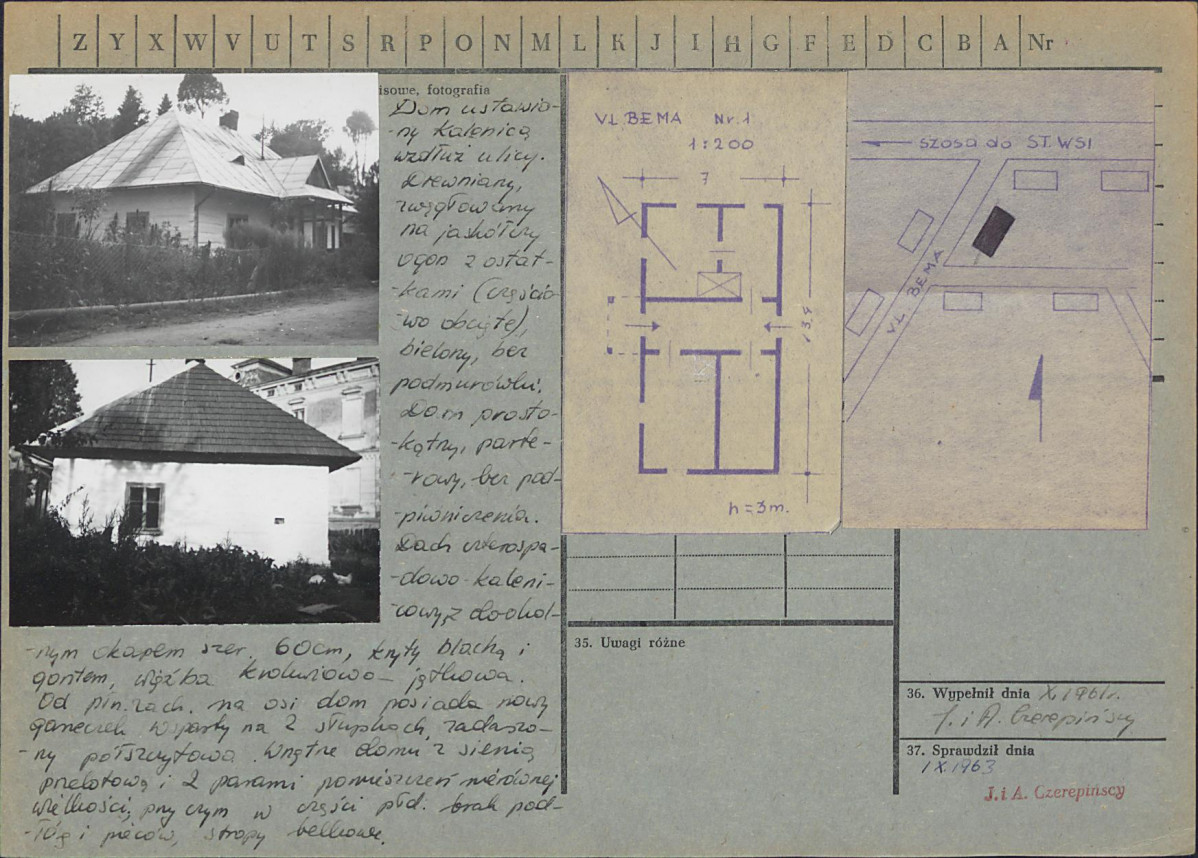 Z Y X W V U T S R P O N M L K J I H G F E D C B A Nr
isowe, fotografia
Dom ustawio-
-ny kalenicą
wzdłuż ulicy.
Drewniany,
zwęgłowany
na jaskółczy
ogon z ostat-
-kami (częścio-
-wo obcięte),
bielony, bez
podmurówki.
Dom prosto-
-kątny, parte-
-rowy, bez pod-
-piwniczenia.
Dach czterospa-
-dowo-kaleni-
-cowy, z dookol-
-nym okapem szer. 60cm, kryty blachą i
gontem, więźba krokwiowo-jętkowa.
Od płn.zach. na osi dom posiada nowy
ganeczek wsparty na 2 słupkach, zadaszo-
-ny półszczytowo. Wnętrze domu z sienią
przelotową i 2 parami pomieszczeń nierównej
wielkości, przy czym w części płd. brak pod-
-łóg i pieców, stropy belkowe.
VL. BEMA Nr. 1
1:200
7
13,9
h = 3m.
szosa do ST. WSI
VL. BEMA
35. Uwagi różne
36. Wypełnił dnia X.1961r.
J. i A. Czerepińscy
37. Sprawdził dnia
1 X.1963
J. i A. Czerepińscy